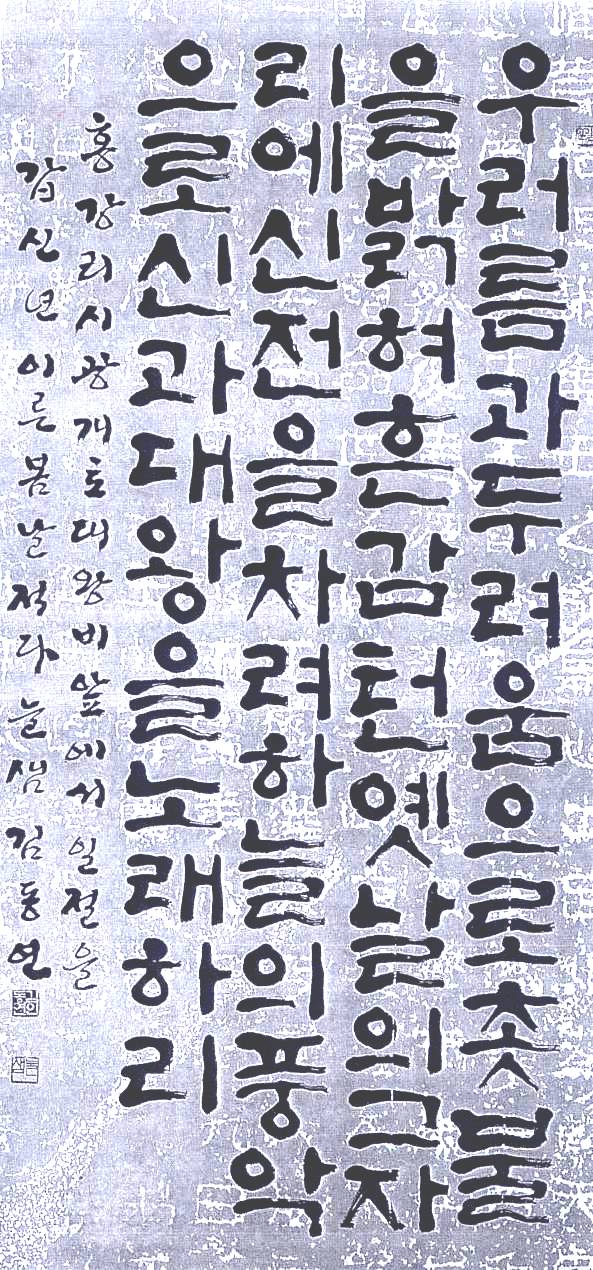 우러름과두려움으로촛불
을밝혀흔감턴옛날의그자
리에신전을차려하늘의풍악
으로신과대왕을노래하리
홍강리시광개토대왕비앞에서일절을
갑신년이른봄날적다늘샘김동연